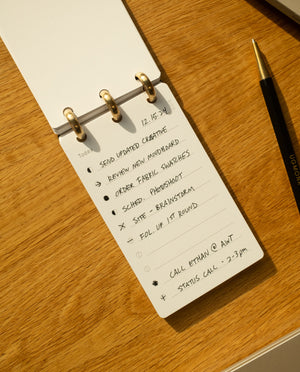 12.15.24
TODAY
SEND UPDATED CREATIVE
→ REVIEW NEW MOODBOARD
ORDER FABRIC SWATCHES
SCHED. PHOTOSHOOT
× SITE - BRAINSTORM
FOL. UP 1ST ROUND
CALL ETHAN @ AWT
+ STATUS CALL - 2-3pm